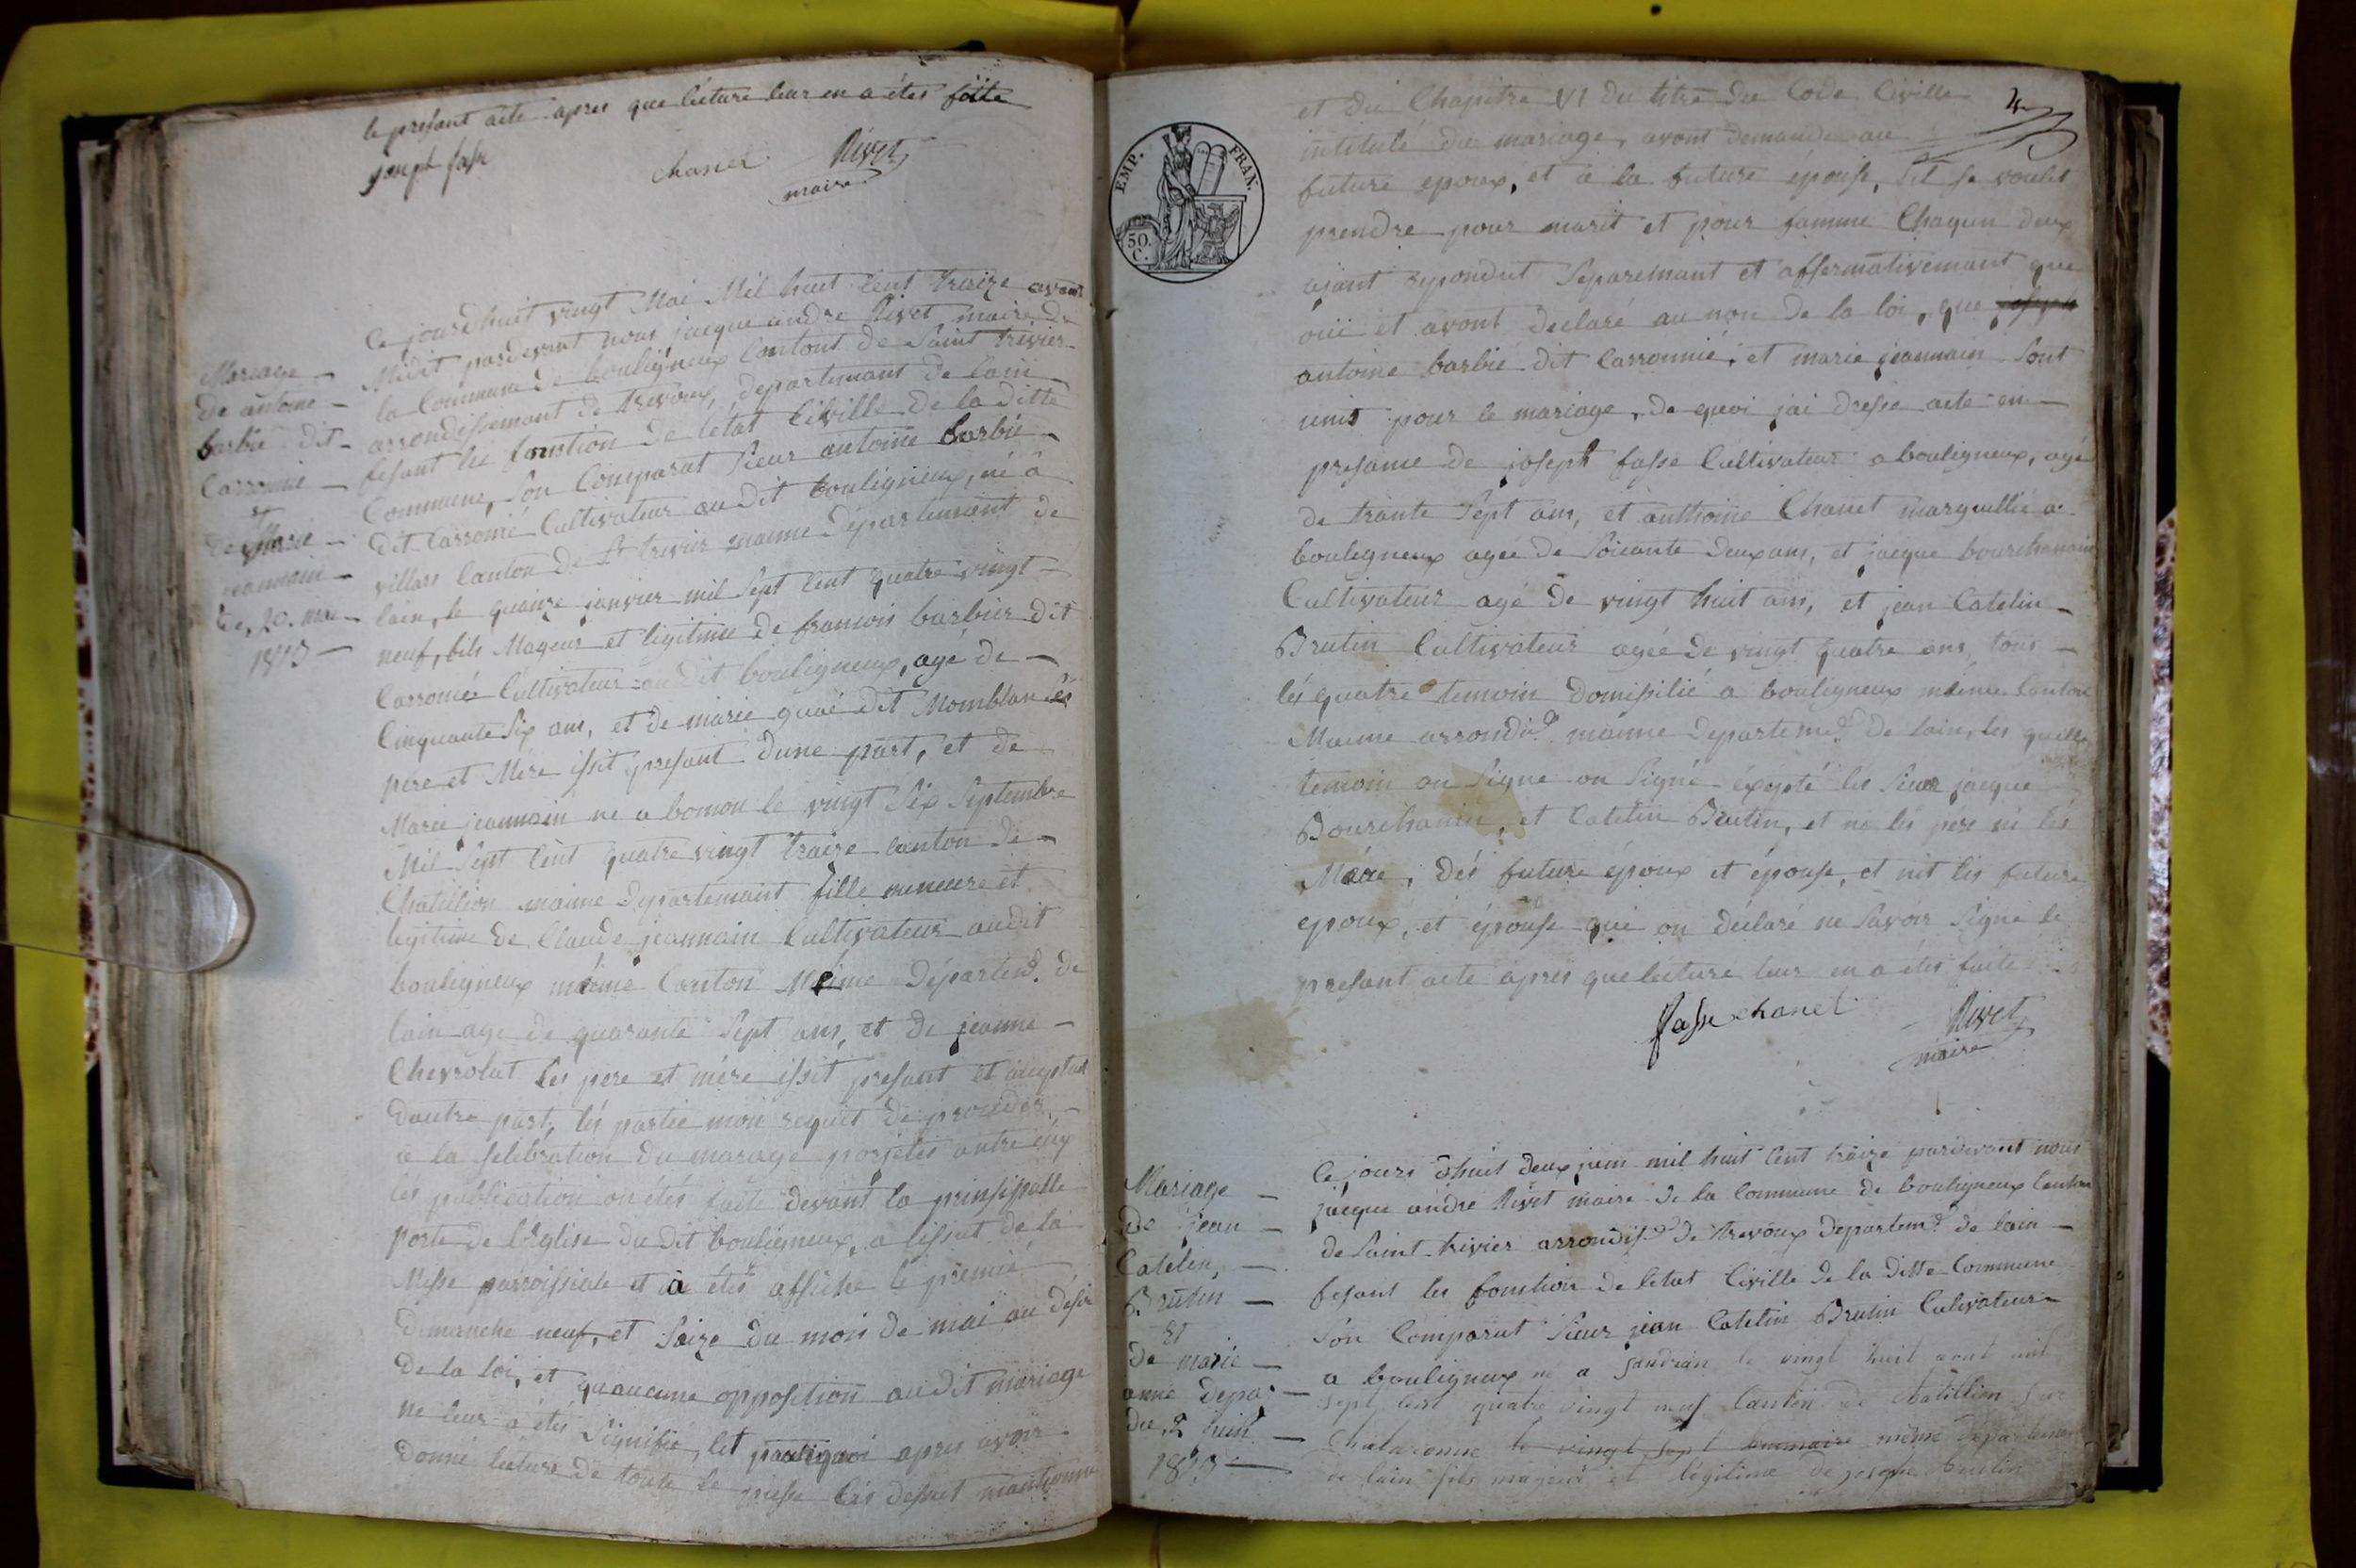 le presant acte apres que lécture leur en a étes faitte
joseph fasse chanel Rivet
maire
Mariage
De antoine
barbié dit
Carronnié
Et
De marie
jeannain
Le, 20. mai
1813
Ce jourdhuit vingt Mai Mil huit Cent traize avant
Midit pardevant nous jacque andre Rivet maire de
la Commune de bouligneux Contont de Saint trivier
arrondissemant de trevoux, departemant de lain
fesant les fonction de letat Civille de la ditte
Commune, Son Comparut Sieur antoine barbié
dit Carronié Cultivateur au dit bouligneux, né à
villars Canton de St trivier maime Département de
lain, le quinze janvier mil Sept Cent quatre vingt
neuf, fils Mageur et legitime de francois barbier dit
Carronié Cultivateur au dit bouligneux, agé de
Cinquante Six ans, et de marie guaé dit Momblan lés
pere et Mére issit presant dune part, et de
Marie jeannain ne a bomon le vingt Six Septembre
Mil Sept Cent quatre vingt traize canton de
Chatillion maime Departemant fille mineure et
legitime de Claude jeannain Cultivateur au dit
bouligneux méme Canton Méme Départemt. de
lain age de quarante Sept ans, et de jeanne
Chevrolat les pere et mére issit presant et aceptant
dautre part, lés partie mon requit de proceder
a la selébration du marage projetés antre eux
lés publication on étés faite devant la prinsipalle
porte de l'Eglise du dit bouligneux, a lissut de la
Messe parroissiale et a étés affiché le premié
dimanche neuf, et Saize du mois de mai au désir
de la loi, et quaucune opposition au dit mariage
ne leur a étés Signifiée, let pourquoi apres avoir
donné lécture de toute le piesse cis dessut mantionné
et du Chapitre VI du titre du Code Civille
intitulé du mariage, avont demandé au
future epoux, et à la future épouse, Sit se voulet
prendre pour marit et pour famme Chaqun deux
ajant repondut Separemant et affermativemant que
oui et avont declaré au non de la loi, que
antoine barbié dit Carronnié, et marie jeannain Sont
unis pour le mariage, de quoi jai dressé acte en
presance de joseph fasse Cultivateur a bouligneux, agé
de trante Sept ans, et anthoine Chanel marguillié a
bouligneux agée de Soicante deux ans, et jacque bourchanain
Cultivateur agé de vingt huit ans, et jean Catelin
Brutin Cultivateur agée de vingt quatre ans, tous
lés quatre temoin domissilié a bouligneux méme Canton
Maime arrondit. maime departemt. de lain, les quelle
temoin on Signe on Signé éxcpté les Sieur jacque
Bourchanin, et Catelin Brutin, et ne lés pére ni lés
Mére, dés future époux et épouse, et nit lés future
epoux, et épouse qui on déclaré ne Savoir Signé le
presant acte apres que lecture leur en a étés faite
fasse chanel Rivet
maire
Mariage
De jean
Catelin,
Brutin
Et
De marie
anne depa.
du, 2 juin
1813
Ce jours dhuit deux juin mil huit Cent traize pardevant nous
jacque andre Rivet maire de la Commune de bouligneux Canton
de Saint trivier arrondist. de trevoux departemt. de lain
fesant les fonction de letat Civille de la ditte Commune
Son Comparut Sieur jean Catelin Brutin Cultivateur
a bouligneux né a Sandran le vingt huit aout mil
sept Cent quatre vingt neuf Canton de Chatillion sur
Chalaronne le vingt sept brumaire méme département
de lain fils majeur et légitime de joseph Brutin